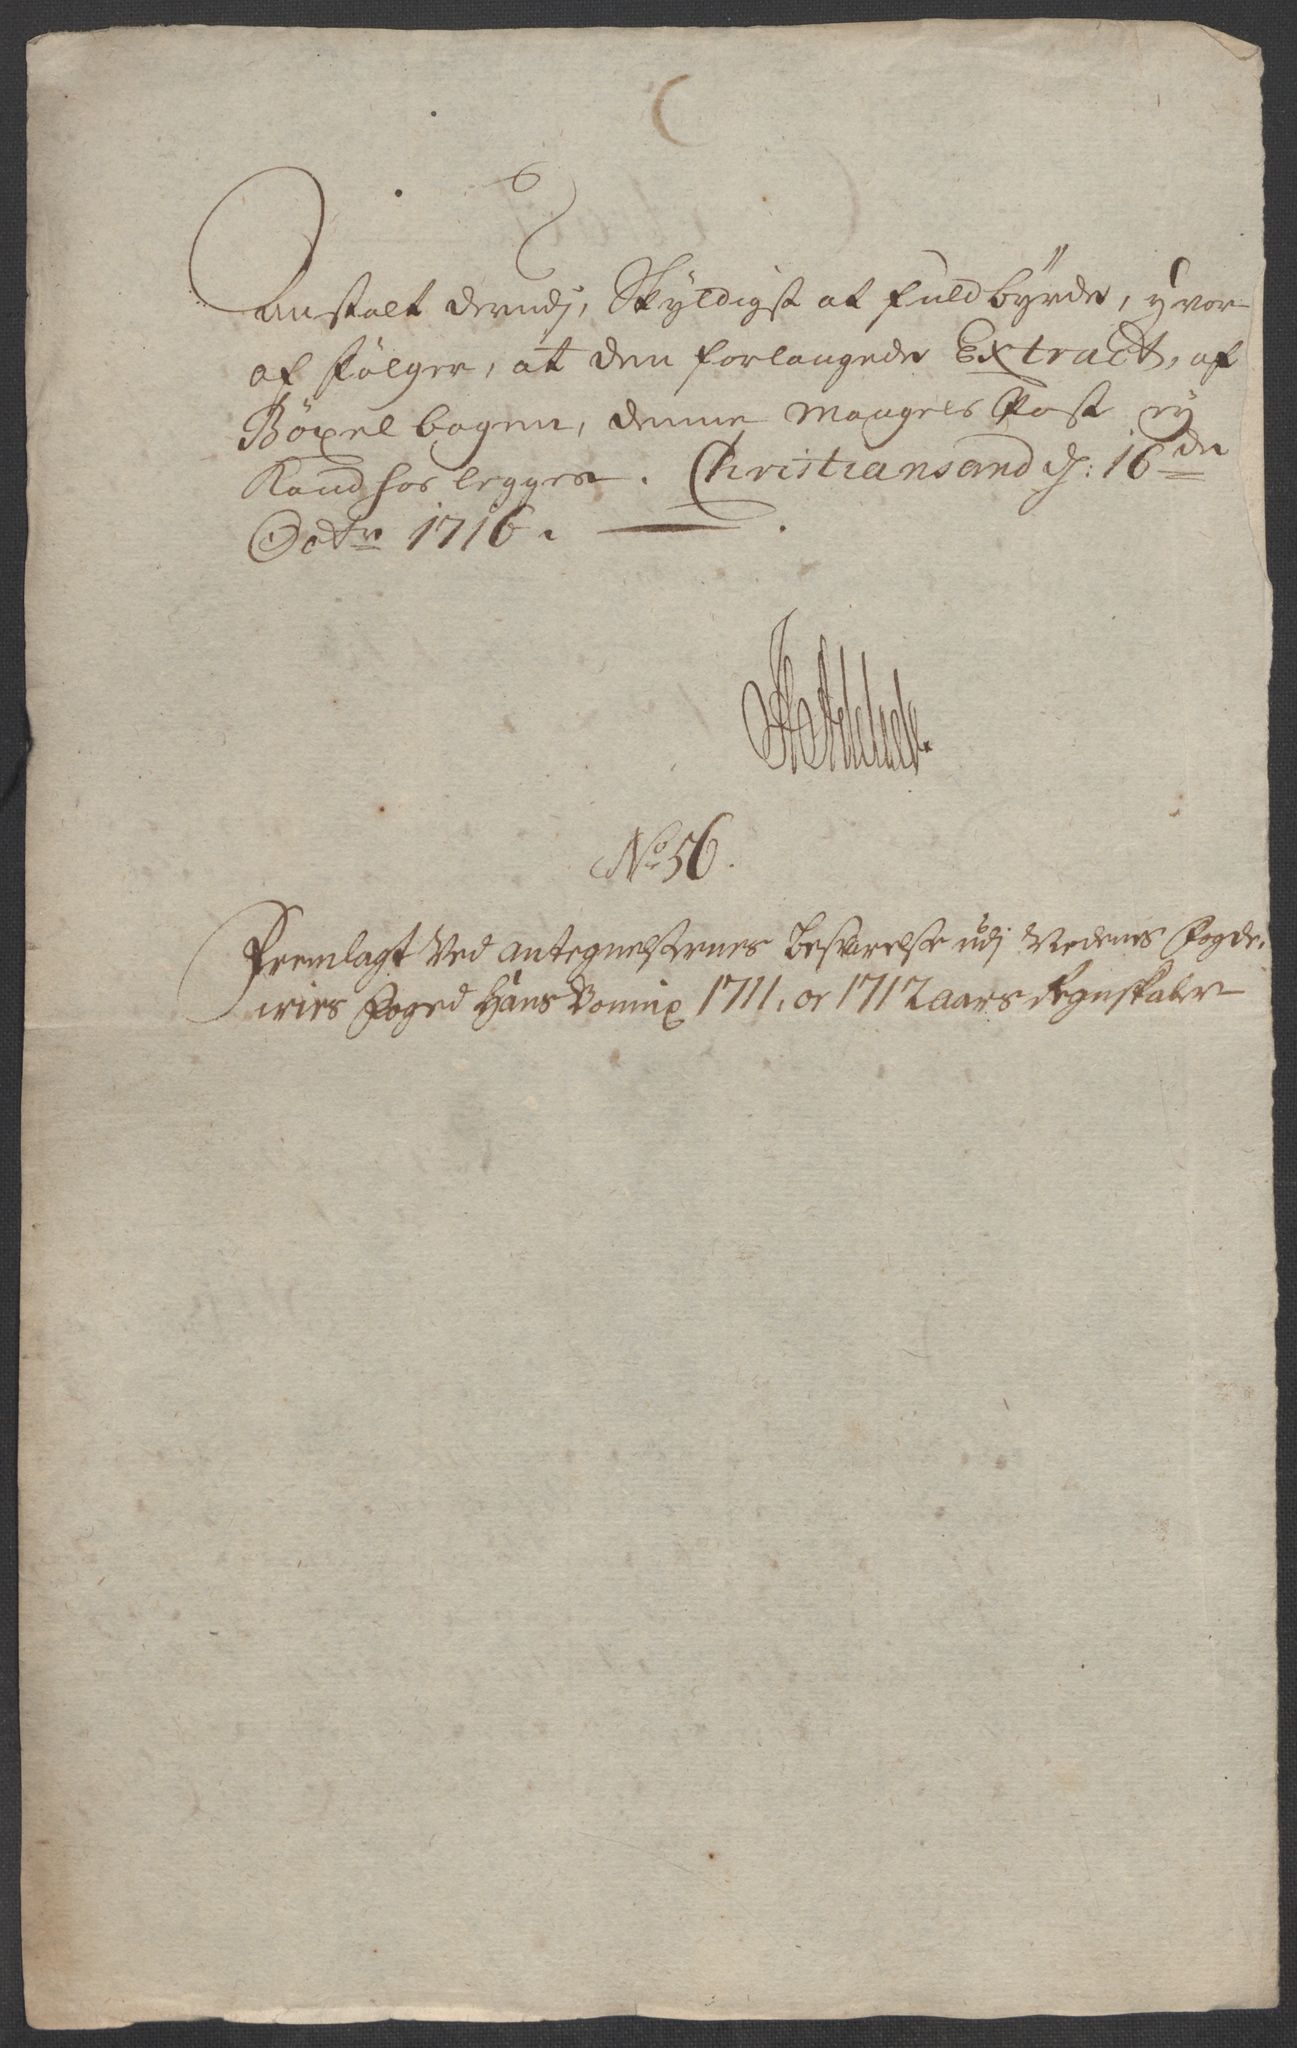 anstalt derudj, Skyldigst at fuldbyrde, hvor
af følger, at den forlangede Extract, af
Böxelbogen, denne Mangels Post ey
Kand hos legges. Christiansand d: 16de
Octr 1716.
No 56.
Fremlagt Ved antegnelsernes besvarelse udj Nedenes Fogde,
iries Foged Hans 1711, oc 1712 aars Regnskaber